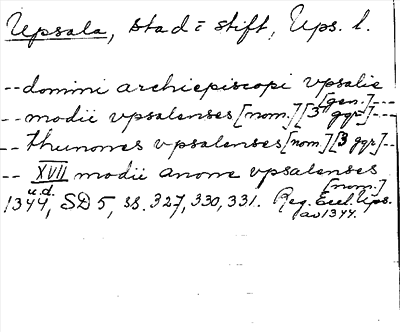 Upsala, stad = stift, Ups. l.
-- domini archiepiscopi vpsalie [gen.] ---
-- modii vpsalenses [nom.] [3 ggr] ---
-- thunones vpsalenses [nom.] [3 ggr] --
-- XVII modii anone vpsalenses [nom.]
u.d.
1344, SD 5, ss. 327, 330, 331. Reg. Eccl. Ups.
av 1344.